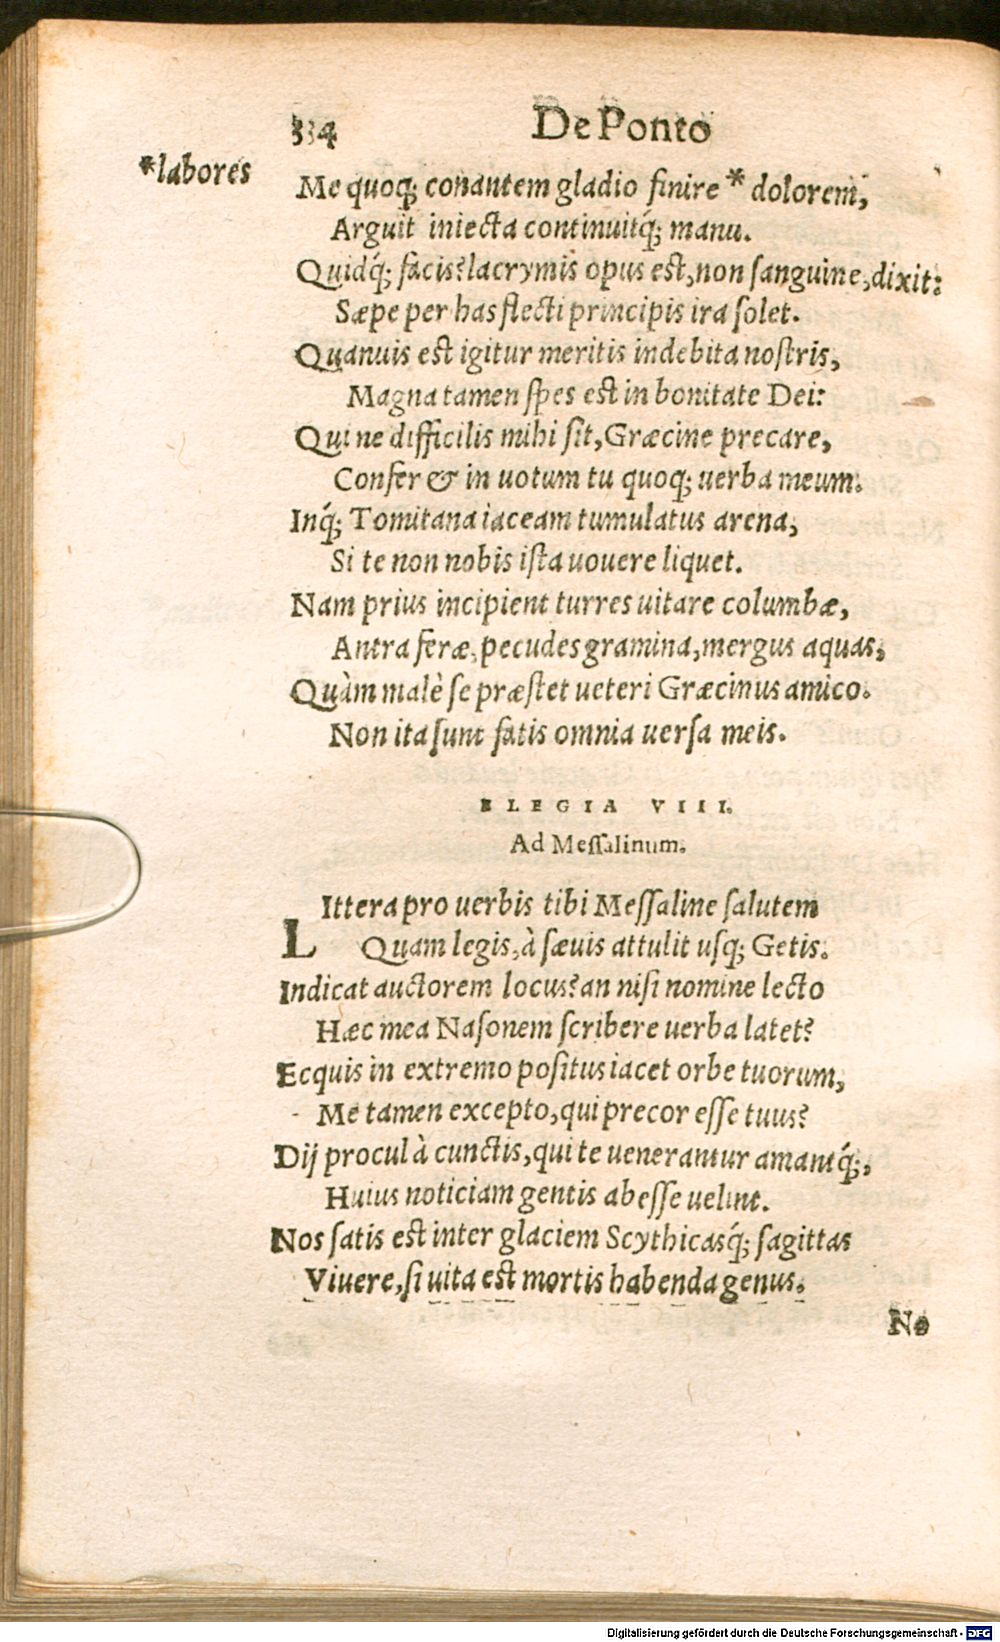 334 De Ponto
*labores
Me quoq; conantem gladio finire * dolorem,
Arguit iniecta continuitq́; manu.
Quidq́; facis? lacrymis opus est, non sanguine, dixit:
Sæpe per has flecti principis ira solet.
Quanuis est igitur meritis indebita nostris,
Magna tamen spes est in bonitate Dei:
Qui ne difficilis mihi sit, Græcine precare,
Confer & in uotum tu quoq; uerba meum.
Inq́; Tomitana iaceam tumulatus arena,
Si te non nobis ista uouere liquet.
Nam prius incipient turres uitare columbæ,
Antra feræ, pecudes gramina, mergus aquas,
Quàm malè se præstet ueteri Græcinus amico.
Non ita sunt fatis omnia uersa meis.
ELEGIA VIII.
Ad Messalinum.
LIttera pro uerbis tibi Messaline salutem
Quam legis, à sæuis attulit usq; Getis.
Indicat auctorem locus? an nisi nomine lecto
Hæc mea Nasonem scribere uerba latet?
Ecquis in extremo positus iacet orbe tuorum,
Me tamen excepto, qui precor esse tuus?
Dij procul à cunctis, qui te uenerantur amantq́;,
Huius noticiam gentis abesse uelint.
Nos satis est inter glaciem Scythicasq́; sagittas
Viuere, si uita est mortis habenda genus.
No
Digitalisierung gefördert durch die Deutsche Forschungsgemeinschaft - DFG